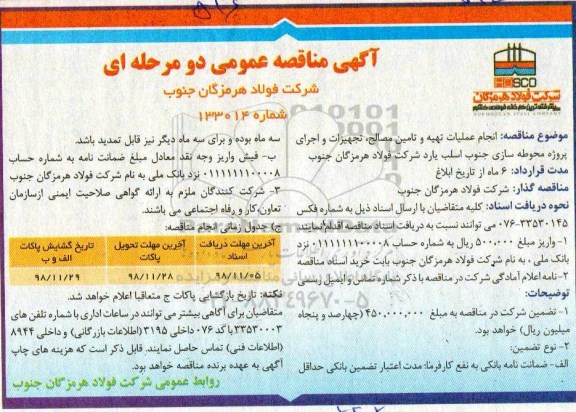 آگهی مناقصه عمومی دو مرحله ای
شرکت فولاد هرمزگان جنوب
شماره ۱۳۳۰۱۴
HOSCO
شرکت فولاد هرمزگان
HORMOZGAN STEEL COMPANY
موضوع مناقصه: انجام عملیات تهیه و تامین مصالح، تجهیزات و اجرای
پروژه محوطه سازی جنوب اسلب یارد شرکت فولاد هرمزگان جنوب
مدت قرارداد: ۶ ماه از تاریخ ابلاغ
مناقصه گذار: شرکت فولاد هرمزگان جنوب
نحوه دریافت اسناد: کلیه متقاضیان با ارسال اسناد ذیل به شماره فکس
۰۷۶-۳۳۵۳۰۱۴۵ می توانند نسبت به دریافت اسناد مناقصه اقدام نمایند:
۱- واریز مبلغ ۵۰۰.۰۰۰ ریال به شماره حساب ۰۱۱۱۱۱۱۱۰۰۰۸ نزد
بانک ملی ، به نام شرکت فولاد هرمزگان جنوب بابت خرید اسناد مناقصه
۲- نامه اعلام آمادگی شرکت در مناقصه با ذکر شماره تماس و ایمیل رسمی
توضیحات:
۱- تضمین شرکت در مناقصه به مبلغ ۴۵۰.۰۰۰.۰۰۰ (چهارصد و پنجاه
میلیون ریال) خواهد بود.
۲- نوع تضمین:
الف- ضمانت نامه بانکی به نفع کارفرما: مدت اعتبار تضمین بانکی حداقل
سه ماه بوده و برای سه ماه دیگر نیز قابل تمدید باشد.
ب- فیش واریز وجه نقد معادل مبلغ ضمانت نامه به شماره حساب
۰۱۱۱۱۱۱۱۰۰۰۸ نزد بانک ملی به نام شرکت فولاد هرمزگان جنوب
۳- شرکت کنندگان ملزم به ارائه گواهی صلاحیت ایمنی ازسازمان
تعاون، کار و رفاه اجتماعی می باشند.
ج) جدول زمانی انجام مناقصه:
آخرین مهلت دریافت اسناد | آخرین مهلت تحویل پاکات | تاریخ گشایش پاکات الف و ب
۹۸/۱۱/۰۵ | ۹۸/۱۱/۲۸ | ۹۸/۱۱/۲۹
نکته: تاریخ بازگشایی پاکات ج متعاقبا اعلام خواهد شد.
متقاضیان برای آگاهی بیشتر می توانند در ساعات اداری با شماره تلفن های
۳۳۵۳۰۰۰۳ با کد ۰۷۶ داخلی ۳۱۹۵ (اطلاعات بازرگانی) و داخلی ۸۹۴۴
(اطلاعات فنی) تماس حاصل نمایند. قابل ذکر است که هزینه های چاپ
آگهی به عهده برنده مناقصه خواهد بود.
روابط عمومی شرکت فولاد هرمزگان جنوب